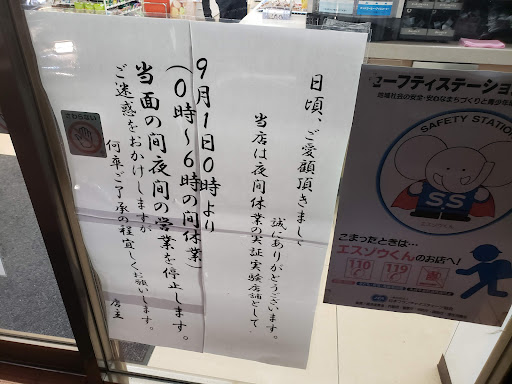 日頃、ご愛顧頂きまして
誠にありがとうございます。
当店は夜間休業の実証実験店舗として
9月1日0時より
(0時~6時の間休業)
当面の間夜間の営業を停止します。
ご迷惑をおかけしますが
何卒ご了承の程宜しくお願いします。
店主
さわらない
セーフティステーション
SAFETY STATION
SS
エスゾウくん
こまったときは…
エスゾウくんのお店へ!
110
119